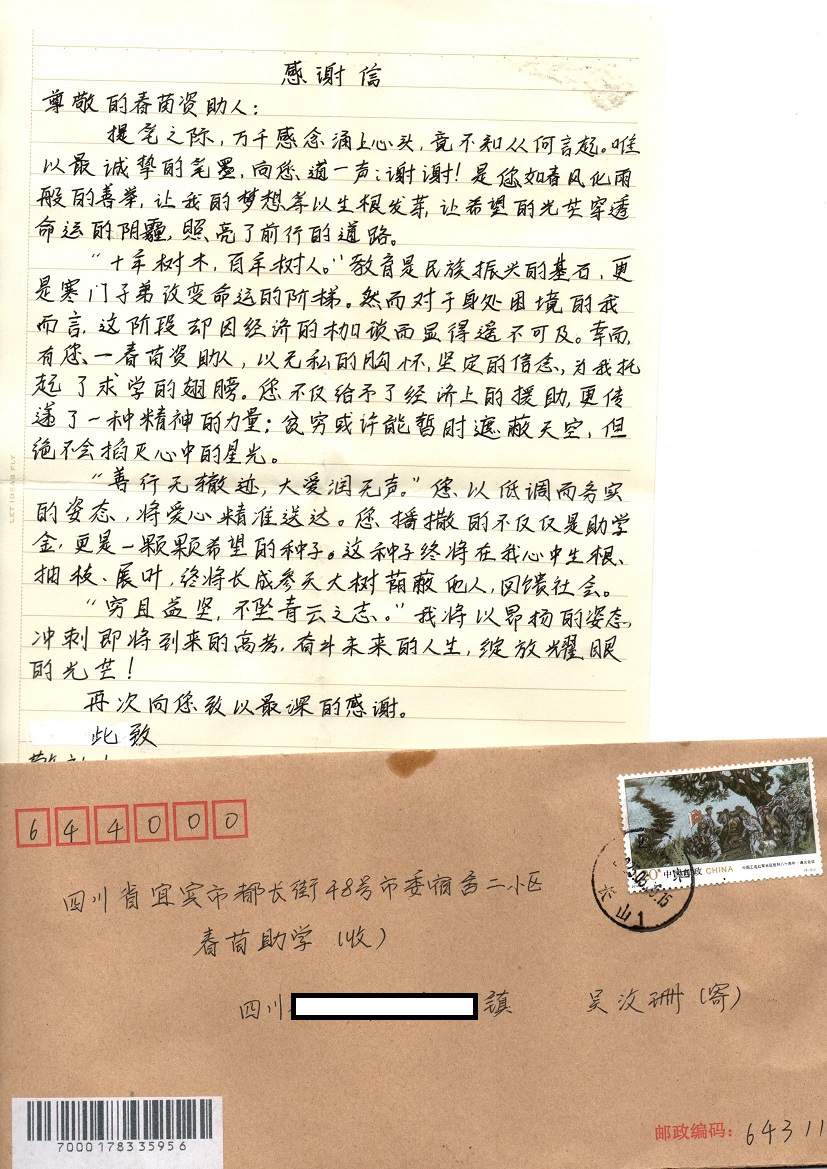 感谢信
尊敬的春苗资助人：
提笔之际，万千感念涌上心头，竟不知从何言起。唯
以最诚挚的笔墨，向您道一声：谢谢！是您如春风化雨
般的善举，让我的梦想等以生根发芽，让希望的光芒穿透
命运的阴霾，照亮了前行的道路。
“十年树木，百年树人。”教育是民族振兴的基石，更
是寒门子弟改变命运的阶梯。然而对于身处困境的我
而言，这阶段却因经济的枷锁而显得遥不可及。幸而，
有您、一春苗资助人，以无私的胸怀，坚定的信念，为我托
起了求学的翅膀。您不仅给予了经济上的援助，更传
递了一种精神的力量；贫穷或许能暂时遮蔽天空，但
绝不会掐灭心中的星光。
“善行无辙迹，大爱润无声。”您以低调而务实
的姿态，将爱心精准送达。您播撒的不仅仅是助学
金，更是一颗颗希望的种子。这种子终将在我心中生根、
抽枝、展叶，终将长成参天大树荫蔽他人，回馈社会。
“穷且益坚，不坠青云之志。”我将以昂扬的姿态，
冲刺即将到来的高考，奋斗未来的人生，绽放耀眼
的光芒！
再次向您致以最深的感谢。
此致
LET IDEAS FLY
644000
中国邮政 CHINA
四川省宜宾市都长街48号市委宿舍二小区
春苗助学（收）
四川 镇 吴汶珊（寄）
7000178335956
邮政编码：64311